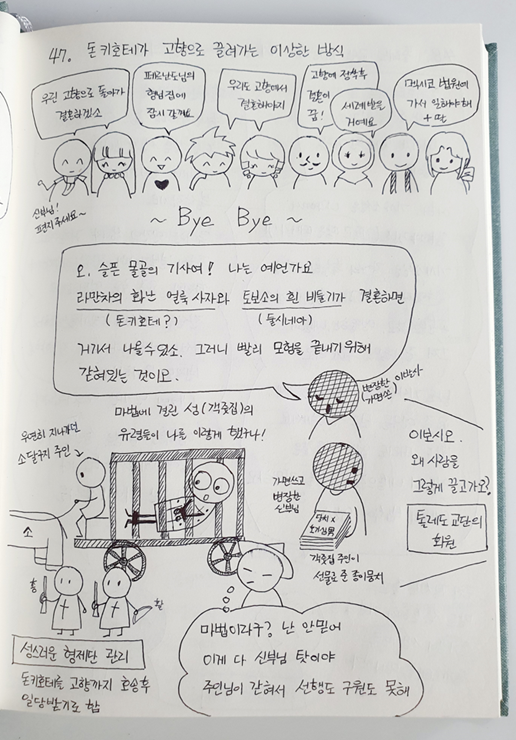 47. 돈키호테가 고향으로 끌려가는 이상한 방식
우린 고향으로 돌아가
결혼하겠소
페르난도님의
형님 집에
잠시 갈게요
우리도 고향에서
결혼해야지
고향에 정착후
결혼이
꿈!
세례받을
거예요
멕시코 법원에
가서 일해야해
+ 딸
신부님!
편지 주세요~
~ Bye Bye ~
오. 슬픈 몰골의 기사여! 나는 예언가요
라만차의 화난 얼룩 사자와 토보소의 흰 비둘기가 결혼하면
(돈키호테?) (둘시네아)
거기서 나올수있소. 그러니 빨리 모험을 끝내기위해
갇혀있는 것이오.
변장한 이발사
(가면씀)
마법에 걸린 성(객줏집)의
유령들이 나를 이렇게 했구나!
우연히 지나가던
소달구지 주인
소
가면쓰고
변장한
신부님
객줏집 주인이
선물로 준 종이뭉치
이보시오.
왜 사람을
그렇게 끌고가오?
톨레도 교단의
회원
총
칼
성스러운 형제단 관리
돈키호테를 고향까지 호송후
일당받기로 함
마법이라구? 난 안믿어
이게 다 신부님 탓이야
주인님이 갇혀서 선행도 구원도 못해